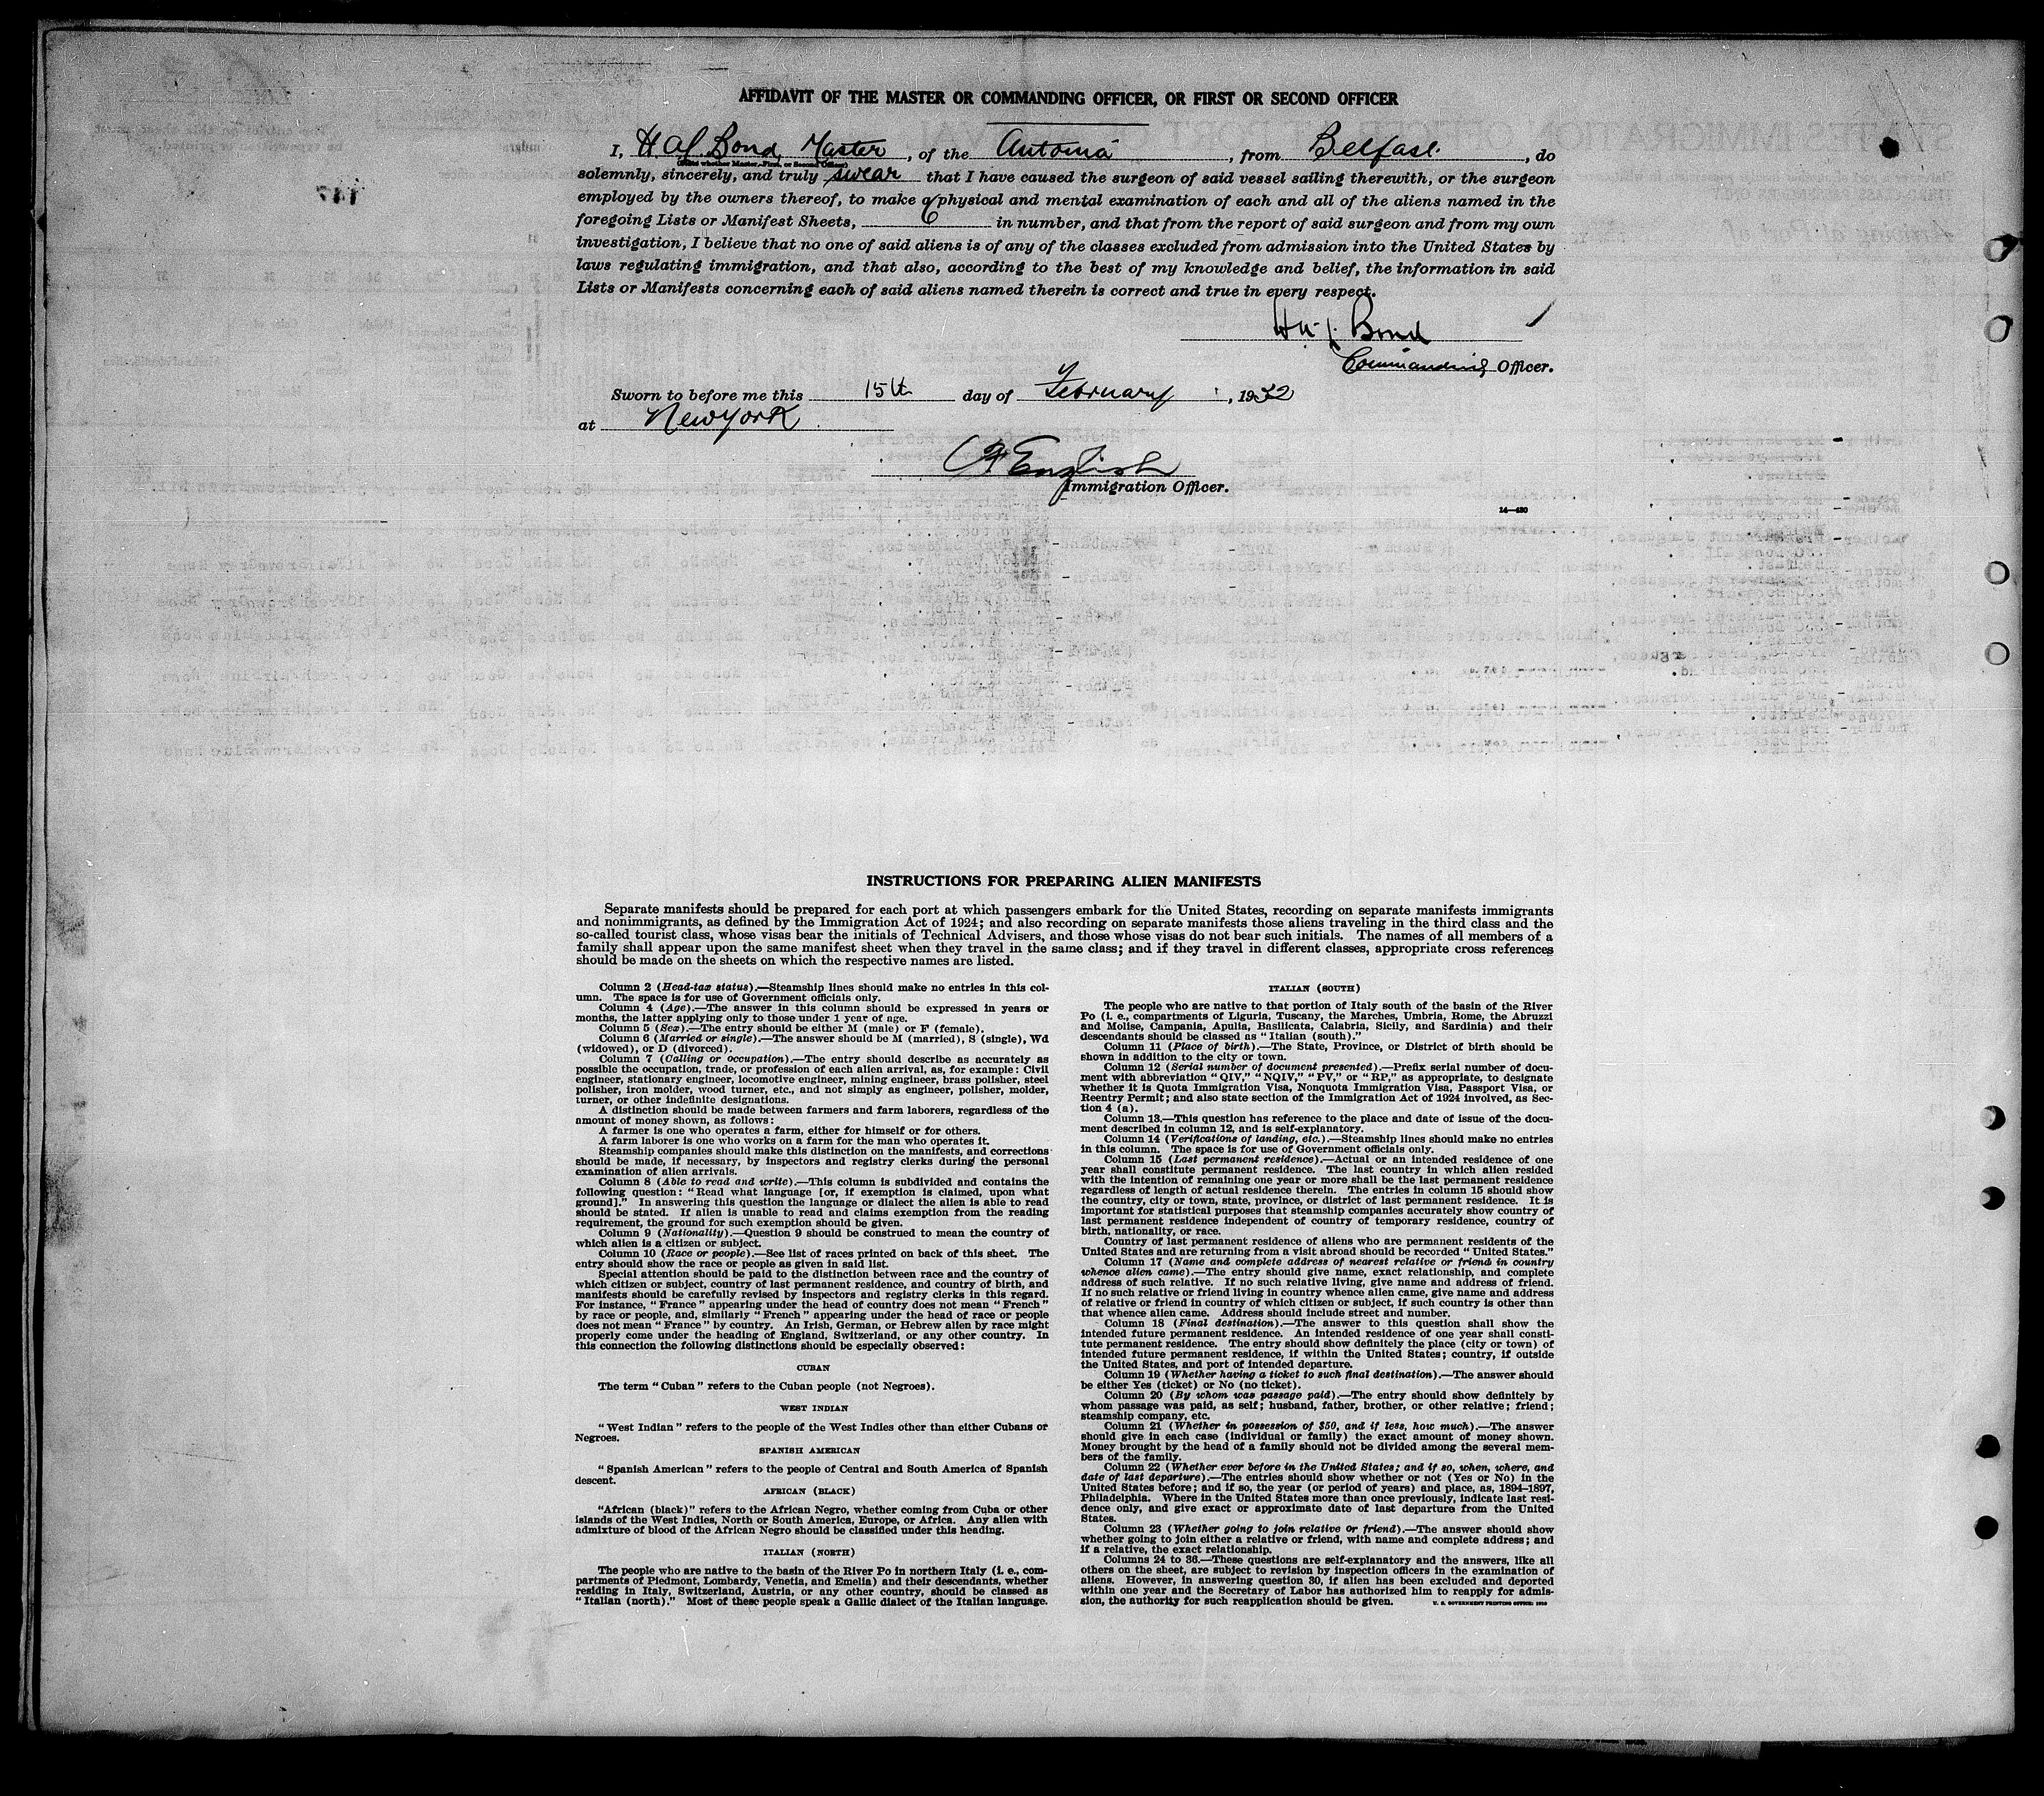 AFFIDAVIT OF THE MASTER OR COMMANDING OFFICER, OR FIRST OR SECOND OFFICER
I, Bond, Master, of the Antonia, from Belfast, do
solemnly, sincerely, and truly swear that I have caused the surgeon of said vessel sailing therewith, or the surgeon
employed by the owners thereof, to make a physical and mental examination of each and all of the aliens named in the
foregoing Lists or Manifest Sheets, 6 in number, and that from the report of said surgeon and from my own
investigation, I believe that no one of said aliens is of any of the classes excluded from admission into the United States by
laws regulating immigration, and that also, according to the best of my knowledge and belief, the information in said
Lists or Manifests concerning each of said aliens named therein is correct and true in every respect.
Bond
Commanding Officer.
Sworn to before me this 15th day of February, 1932
at New York
English
Immigration Officer.
14—430
INSTRUCTIONS FOR PREPARING ALIEN MANIFESTS
Separate manifests should be prepared for each port at which passengers embark for the United States, recording on separate manifests immigrants
and nonimmigrants, as defined by the Immigration Act of 1924; and also recording on separate manifests those aliens traveling in the third class and the
so-called tourist class, whose visas bear the initials of Technical Advisers, and those whose visas do not bear such initials. The names of all members of a
family shall appear upon the same manifest sheet when they travel in the same class; and if they travel in different classes, appropriate cross references
should be made on the sheets on which the respective names are listed.
Column 2 (Head-tax status).—Steamship lines should make no entries in this col-
umn. The space is for use of Government officials only.
Column 4 (Age).—The answer in this column should be expressed in years or
months, the latter applying only to those under 1 year of age.
Column 5 (Sex).—The entry should be either M (male) or F (female).
Column 6 (Married or single).—The answer should be M (married), S (single), Wd
(widowed), or D (divorced).
Column 7 (Calling or occupation).—The entry should describe as accurately as
possible the occupation, trade, or profession of each alien arrival, as, for example: Civil
engineer, stationary engineer, locomotive engineer, mining engineer, brass polisher, steel
polisher, iron molder, wood turner, etc., and not simply as engineer, polisher, molder,
turner, or other indefinite designations.
A distinction should be made between farmers and farm laborers, regardless of the
amount of money shown, as follows:
A farmer is one who operates a farm, either for himself or for others.
A farm laborer is one who works on a farm for the man who operates it.
Steamship companies should make this distinction on the manifests, and corrections
should be made, if necessary, by inspectors and registry clerks during the personal
examination of alien arrivals.
Column 8 (Able to read and write).—This column is subdivided and contains the
following question: "Read what language [or, if exemption is claimed, upon what
ground]." In answering this question the language or dialect the alien is able to read
should be stated. If alien is unable to read and claims exemption from the reading
requirement, the ground for such exemption should be given.
Column 9 (Nationality).—Question 9 should be construed to mean the country of
which alien is a citizen or subject.
Column 10 (Race or people).—See list of races printed on back of this sheet. The
entry should show the race or people as given in said list.
Special attention should be paid to the distinction between race and the country of
which citizen or subject, country of last permanent residence, and country of birth, and
manifests should be carefully revised by inspectors and registry clerks in this regard.
For instance, "France" appearing under the head of country does not mean "French"
by race or people, and, similarly "French" appearing under the head of race or people
does not mean "France" by country. An Irish, German, or Hebrew alien by race might
properly come under the heading of England, Switzerland, or any other country. In
this connection the following distinctions should be especially observed:
CUBAN
The term "Cuban" refers to the Cuban people (not Negroes).
WEST INDIAN
"West Indian" refers to the people of the West Indies other than either Cubans or
Negroes.
SPANISH AMERICAN
"Spanish American" refers to the people of Central and South America of Spanish
descent.
AFRICAN (BLACK)
"African (black)" refers to the African Negro, whether coming from Cuba or other
islands of the West Indies, North or South America, Europe, or Africa. Any alien with
admixture of blood of the African Negro should be classified under this heading.
ITALIAN (NORTH)
The people who are native to the basin of the River Po in northern Italy (i. e., com-
partments of Piedmont, Lombardy, Venetia, and Emelia) and their descendants, whether
residing in Italy, Switzerland, Austria, or any other country, should be classed as
"Italian (north)." Most of these people speak a Gallic dialect of the Italian language.
ITALIAN (SOUTH)
The people who are native to that portion of Italy south of the basin of the River
Po (i. e., compartments of Liguria, Tuscany, the Marches, Umbria, Rome, the Abruzzi
and Molise, Campania, Apulia, Basilicata, Calabria, Sicily, and Sardinia) and their
descendants should be classed as "Italian (south)."
Column 11 (Place of birth).—The State, Province, or District of birth should be
shown in addition to the city or town.
Column 12 (Serial number of document presented).—Prefix serial number of docu-
ment with abbreviation "QIV," "NQIV," "PV," or "RP," as appropriate, to designate
whether it is Quota Immigration Visa, Nonquota Immigration Visa, Passport Visa, or
Reentry Permit; and also state section of the Immigration Act of 1924 involved, as Sec-
tion 4 (a).
Column 13.—This question has reference to the place and date of issue of the docu-
ment described in column 12, and is self-explanatory.
Column 14 (Verifications of landing, etc.).—Steamship lines should make no entries
in this column. The space is for use of Government officials only.
Column 15 (Last permanent residence).—Actual or an intended residence of one
year shall constitute permanent residence. The last country in which alien resided
with the intention of remaining one year or more shall be the last permanent residence
regardless of length of actual residence therein. The entries in column 15 should show
the country, city or town, state, province, or district of last permanent residence. It is
important for statistical purposes that steamship companies accurately show country of
last permanent residence independent of country of temporary residence, country of
birth, nationality, or race.
Country of last permanent residence of aliens who are permanent residents of the
United States and are returning from a visit abroad should be recorded "United States."
Column 17 (Name and complete address of nearest relative or friend in country
whence alien came).—The entry should give name, exact relationship, and complete
address of such relative. If no such relative living, give name and address of friend.
If no such relative or friend living in country whence alien came, give name and address
of relative or friend in country of which citizen or subject, if such country is other than
that whence alien came. Address should include street and number.
Column 18 (Final destination).—The answer to this question shall show the
intended future permanent residence. An intended residence of one year shall consti-
tute permanent residence. The entry should show definitely the place (city or town) of
intended future permanent residence, if within the United States; country, if outside
the United States, and port of intended departure.
Column 19 (Whether having a ticket to such final destination).—The answer should
be either Yes (ticket) or No (no ticket).
Column 20 (By whom was passage paid).—The entry should show definitely by
whom passage was paid, as self; husband, father, brother, or other relative; friend;
steamship company, etc.
Column 21 (Whether in possession of $50, and if less, how much).—The answer
should give in each case (individual or family) the exact amount of money shown.
Money brought by the head of a family should not be divided among the several mem-
bers of the family.
Column 22 (Whether ever before in the United States; and if so, when, where, and
date of last departure).—The entries should show whether or not (Yes or No) in the
United States before; and if so, the year (or period of years) and place, as, 1894–1897,
Philadelphia. Where in the United States more than once previously, indicate last resi-
dence only, and give exact or approximate date of last departure from the United
States.
Column 23 (Whether going to join relative or friend).—The answer should show
whether going to join either a relative or friend, with name and complete address; and
if a relative, the exact relationship.
Columns 24 to 36.—These questions are self-explanatory and the answers, like all
others on the sheet, are subject to revision by inspection officers in the examination of
aliens. However, in answering question 30, if alien has been excluded and deported
within one year and the Secretary of Labor has authorized him to reapply for admis-
sion, the authority for such reapplication should be given.